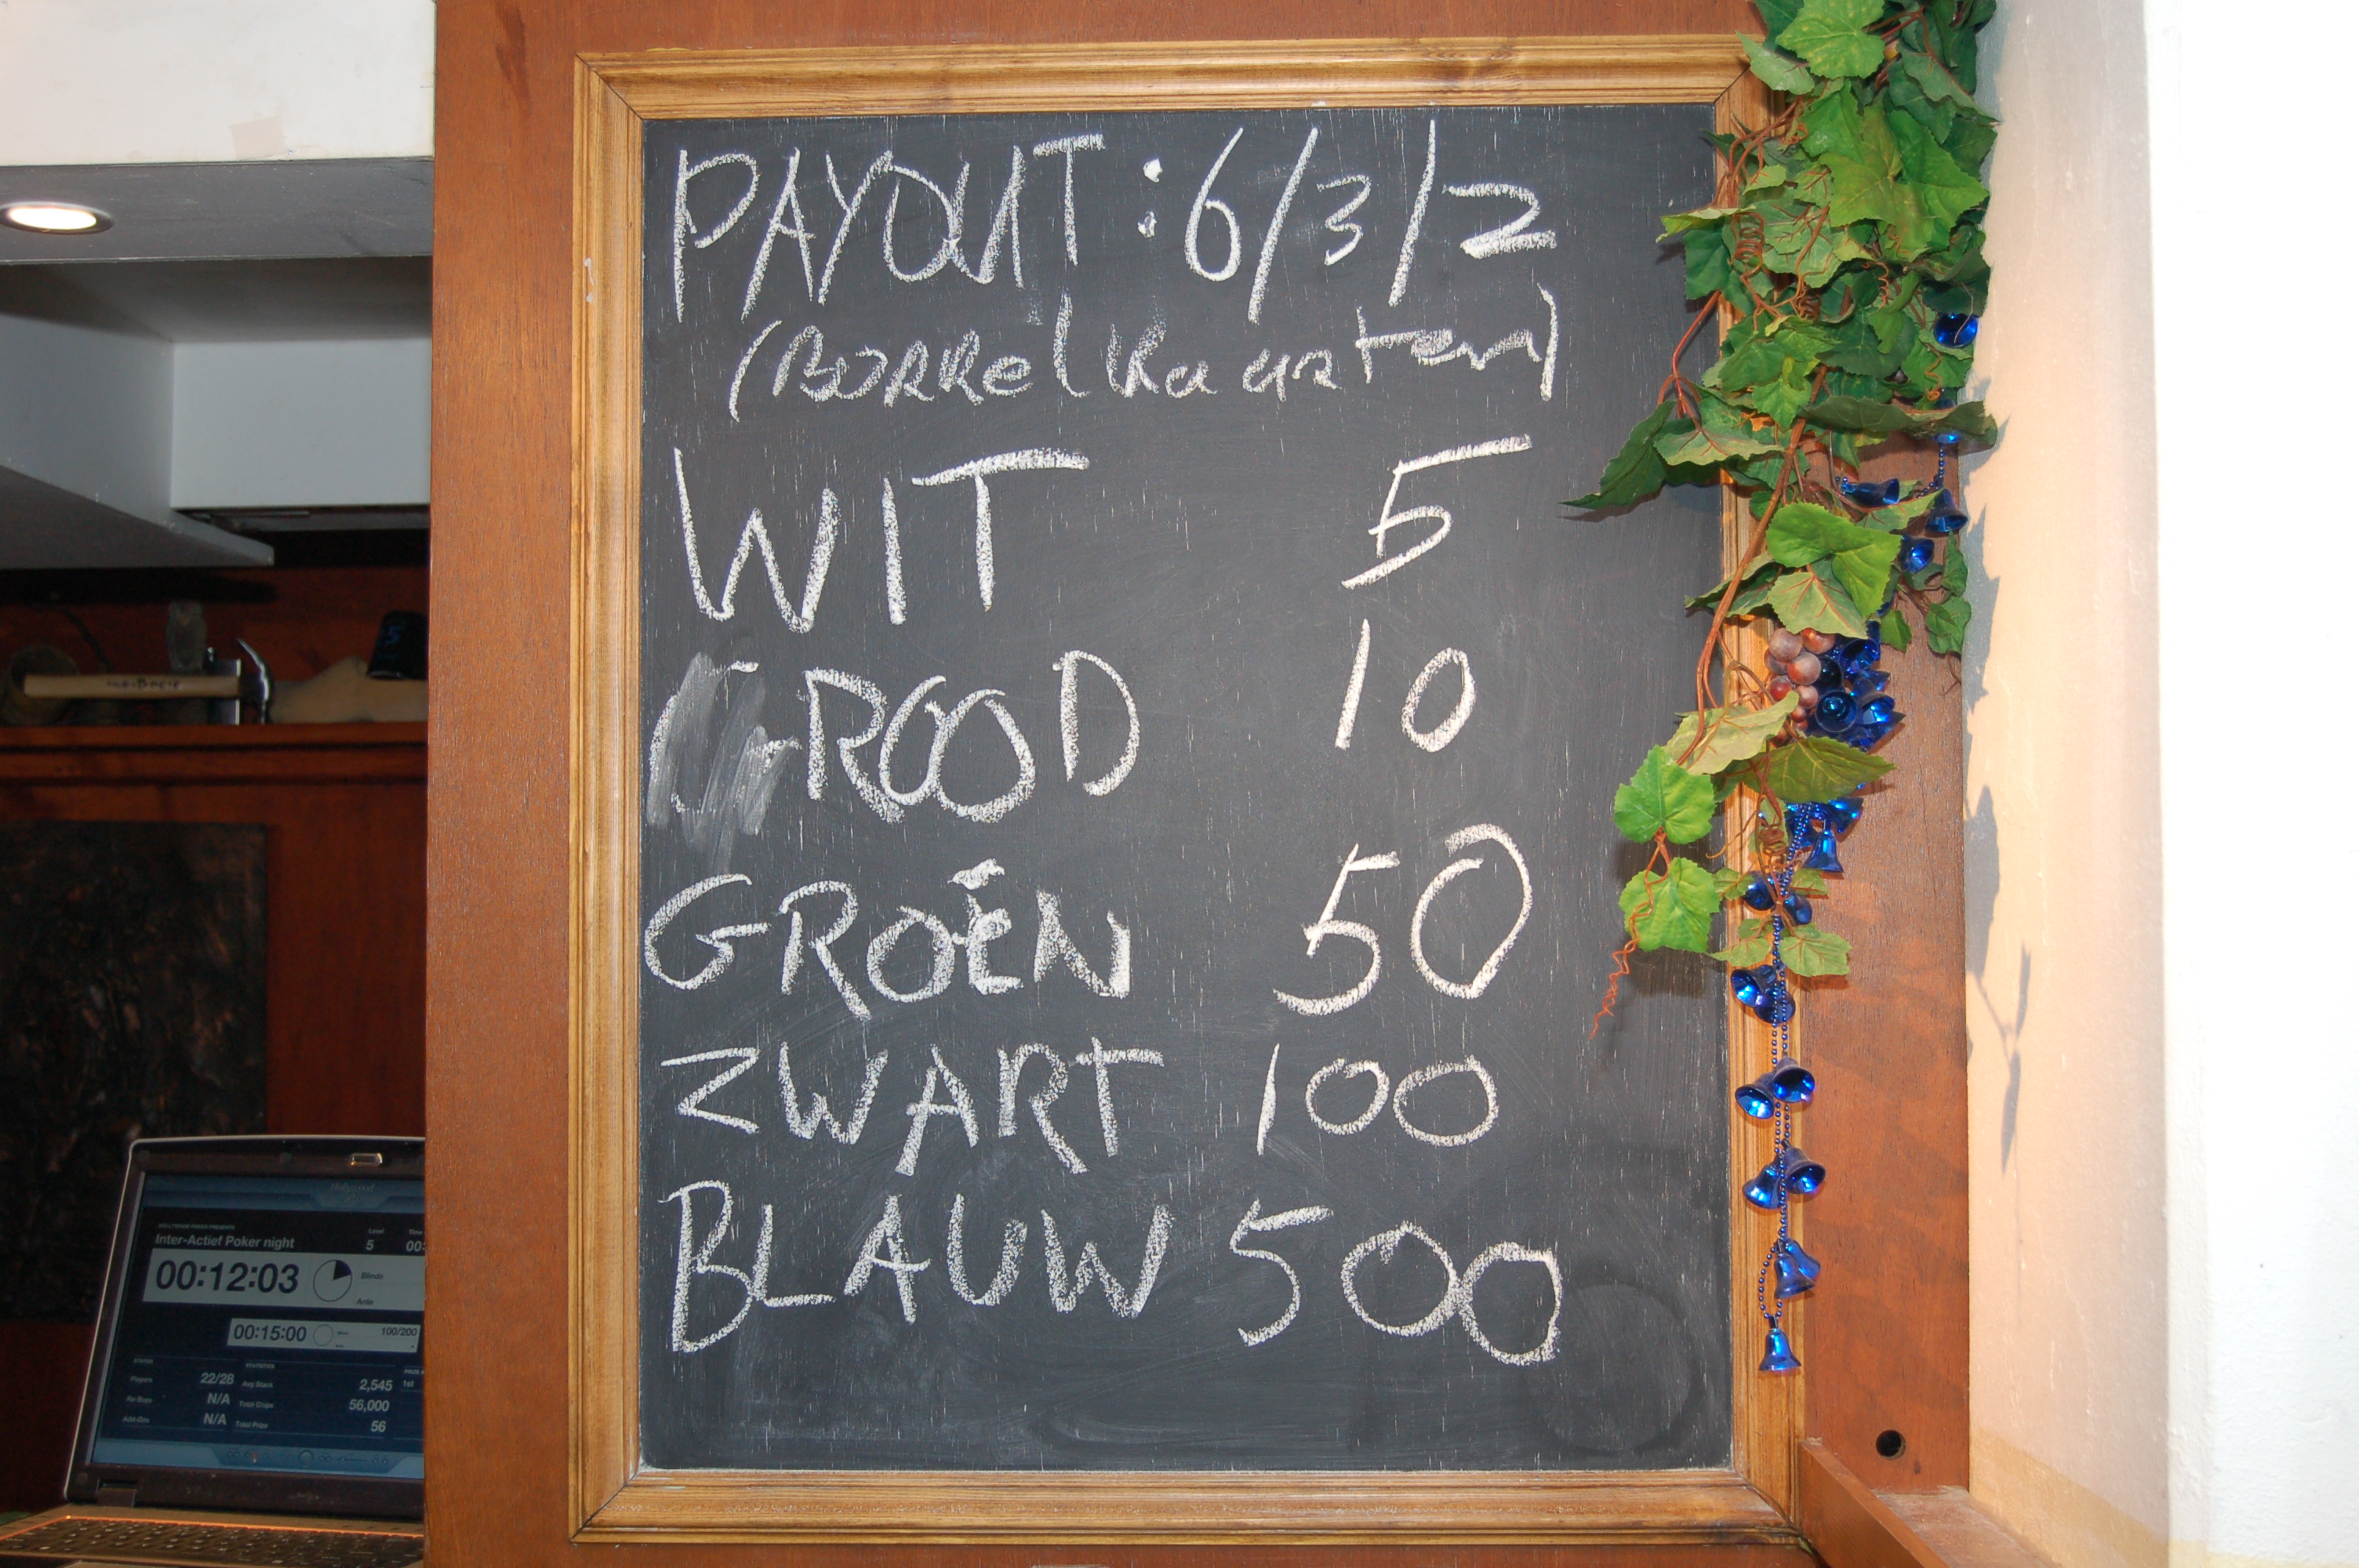 PAYOUT: 6/3/2
(BORRelkaarten)
WIT 5
ROOD 10
GROEN 50
ZWART 100
BLAUW 500
Inter-Actief Poker night
Level
5
Time
00:
00:12:03
Blinds
Ante
00:15:00
100/200
STATUS
STATISTICS
Players 22/28 Avg Stack 2,545 1st
Re-Buys N/A Total Chips 56,000
Add-Ons N/A Total Prize 56